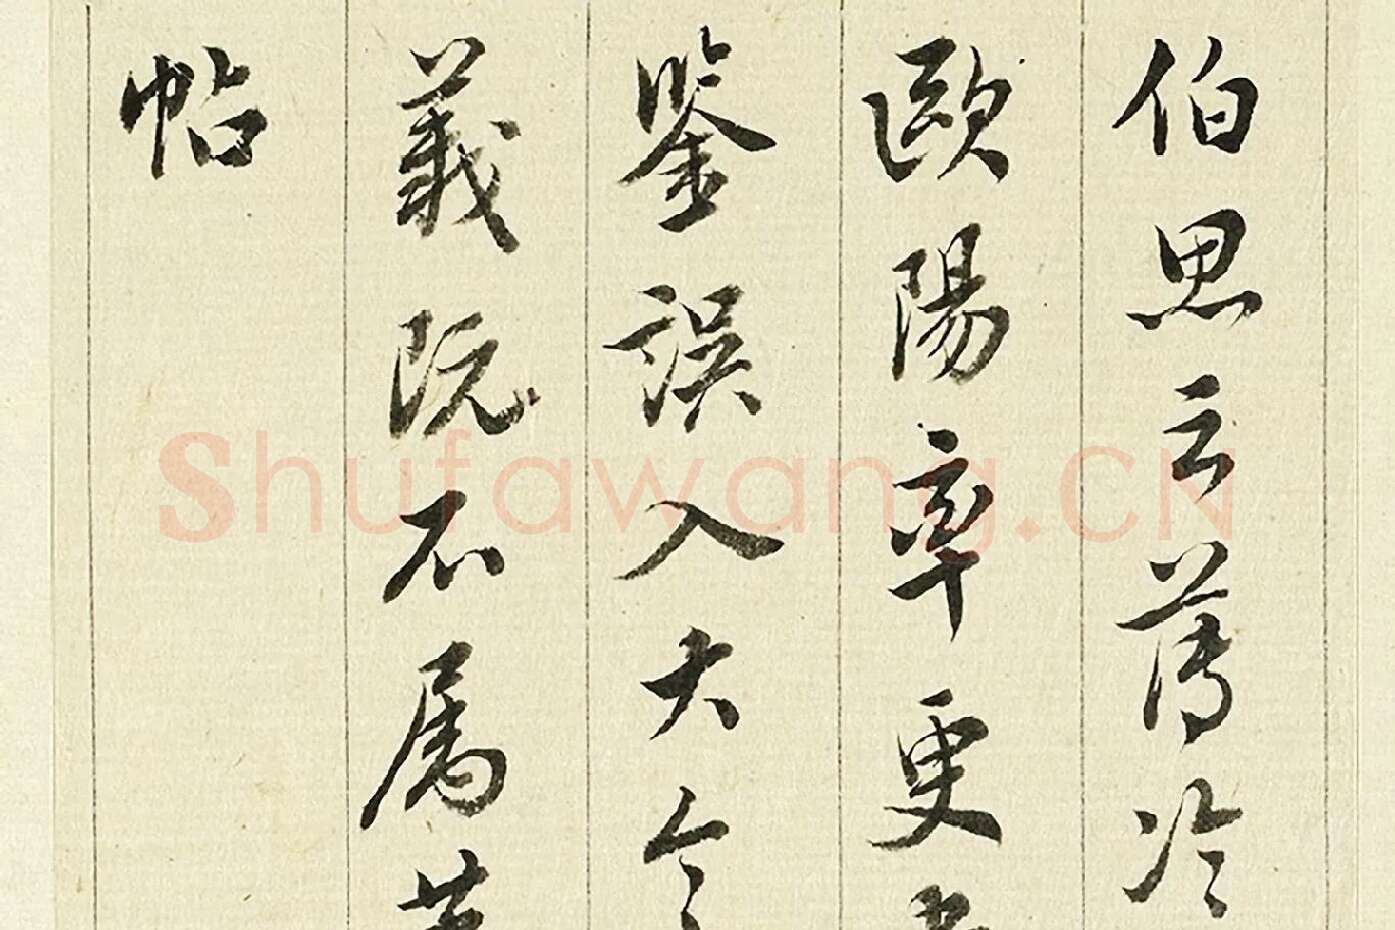 伯思云薄冷
歐陽率更
鉴誤入大令
義既不属
帖
Shufawang.CN